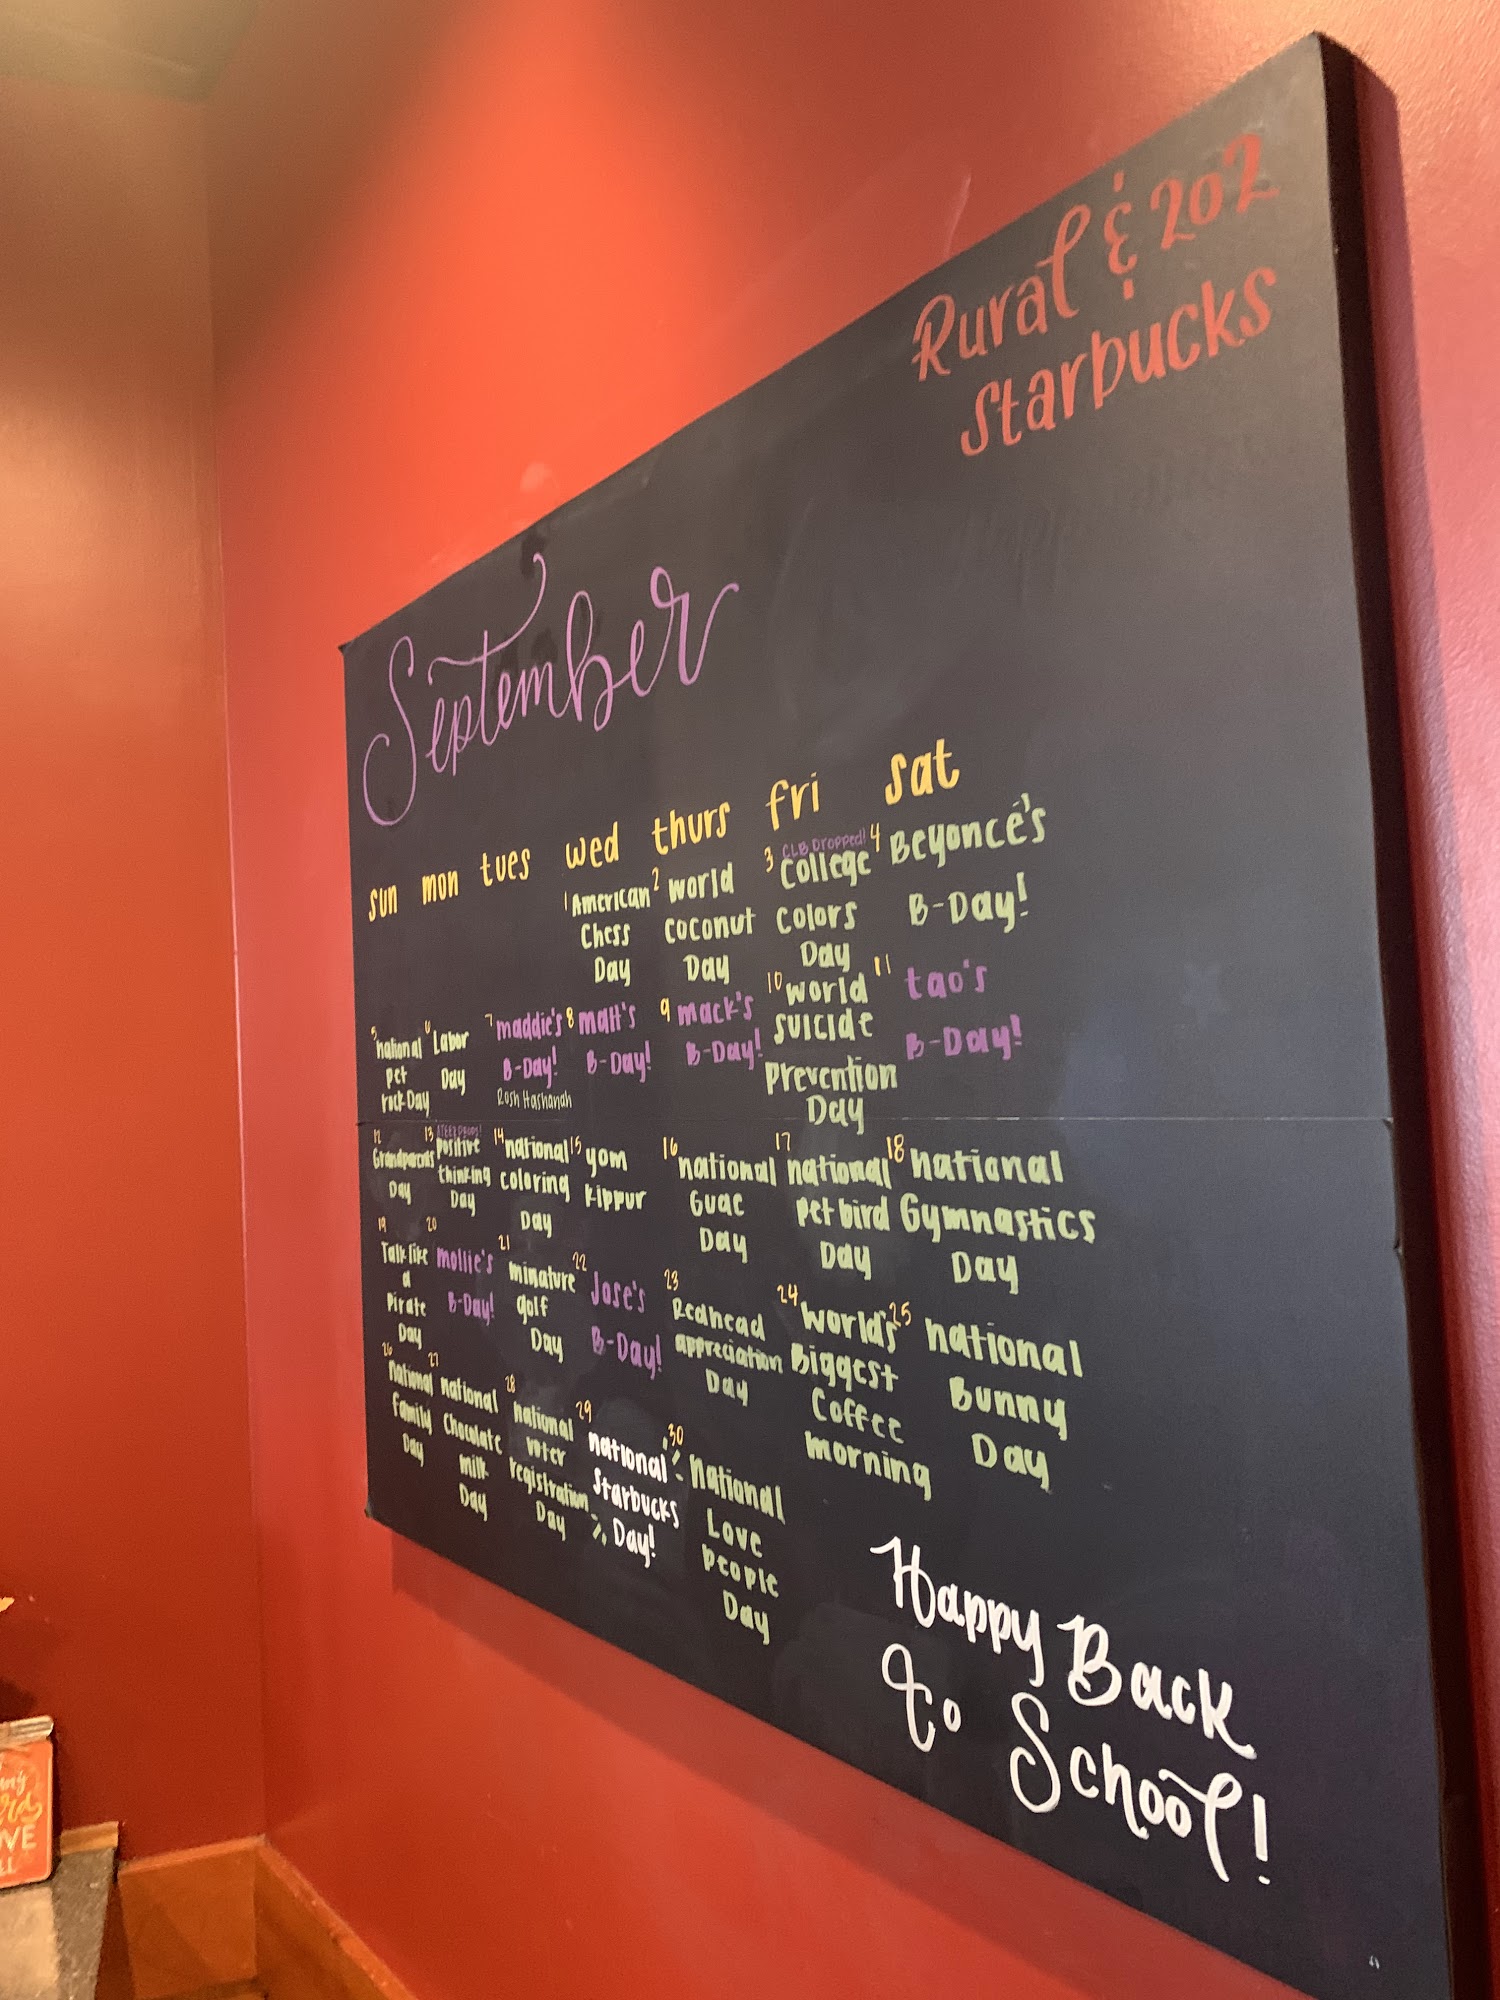 Rural & 202
Starbucks
September
sun mon tues wed thurs fri sat
1 American
Chess
Day
2 World
Coconut
Day
3 CLB Dropped!
College
Colors
Day
4 Beyoncé's
B-Day!
5 national
pet
rock Day
6 Labor
Day
7 maddie's
B-Day!
Rosh Hashanah
8 matt's
B-Day!
9 mack's
B-Day!
10 world
suicide
prevention
Day
11 tao's
B-Day!
12 Grandparents
Day
13
positive
thinking
Day
14 national
coloring
Day
15 yom
kippur
16 national
Guac
Day
17 national
pet bird
Day
18 national
Gymnastics
Day
19
Talk like
a
Pirate
Day
20
mollie's
B-Day!
21
minature
golf
Day
22
Jose's
B-Day!
23
Redhead
appreciation
Day
24 world's
Biggest
Coffee
morning
25 national
Bunny
Day
26
national
family
Day
27
national
Chocolate
milk
Day
28
national
voter
registration
Day
29
national
Starbucks
Day!
30
national
Love
people
Day
Happy Back
to School!